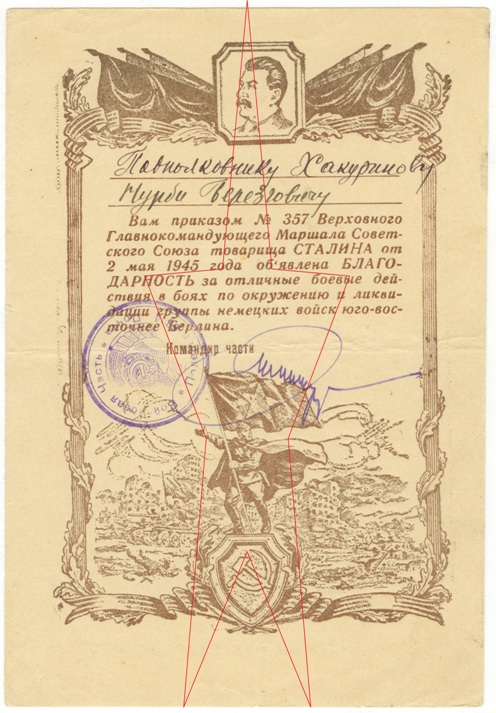 Подполковнику Хакуринову
Нурби
Вам приказом № 357 Верховного
Главнокомандующего Маршала Совет-
ского Союза товарища СТАЛИНА от
2 мая 1945 года об‘явлена БЛАГО-
ДАРНОСТЬ за отличные боевые дей-
ствия в боях по окружению и ликви-
дации группы немецких войск юго-вос-
точнее Берлина.
Командир части